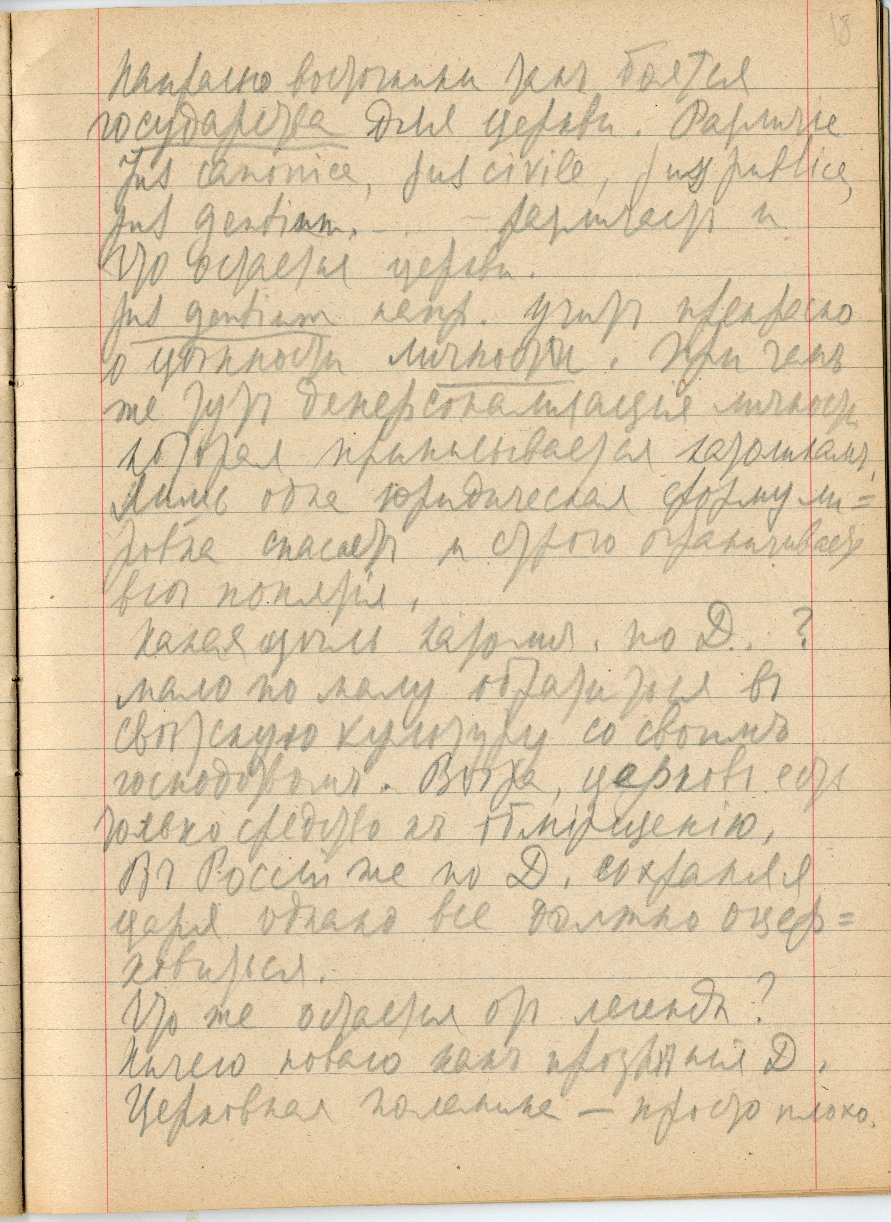 18
Напрасно восточники такъ боятся
государства для церкви. Различіе
Jus canonice, jus civile, jus publice,
jus gentium. - . - различаетъ и
что остается церкви.
Jus gentium напр. учитъ прекрасно
о цѣнности личности. При чемъ
же тутъ деперсонализація личности,
которая приписывается католикамъ,
Лишь одна юридическая формули=
ровка спасаетъ и строго ограничиваетъ
всѣ понятія.
Какая цѣль католич. по Д. ?
мало по малу обратиться въ
свѣтскую культуру со своимъ
господствомъ. Вѣра, церковь есть
только средство къ обмірщенію,
Въ Россіи же по Д. сохраняя
царя однако все должно оцер=
ковиться.
Что же остается отъ легенды?
Ничего новаго какъ прозрѣнія Д.
Церковная полемика — просто плохо.